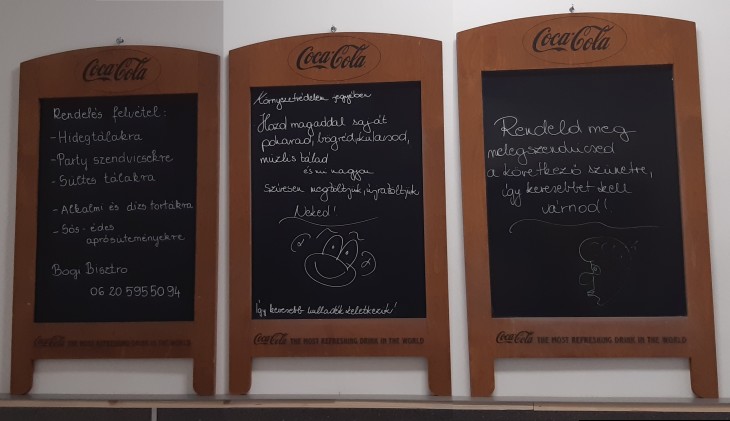 Coca-Cola
Rendelés felvétel:
- Hidegtálakra
- Party szendvicsekre
- Sültes tálakra
- Alkalmi és dísztortákra
- Sós - édes
aprósüteményekre
Bogi Bisztro
06 20 595 50 94
Coca-Cola THE MOST REFRESHING DRINK IN THE WORLD
Coca-Cola
Környezetvédelem jegyében
Hozd magaddal saját
poharad, bögréd, kulacsod,
müzlis tálad
és mi nagyon
Szívesen megtöltjük, újratöltjük
Neked!
Így kevesebb hulladék keletkezik!
Coca-Cola THE MOST REFRESHING DRINK IN THE WORLD
Coca-Cola
Rendeld meg
melegszendvicsed
a következő szünetre,
így kevesebbet kell
várnod!
Coca-Cola THE MOST REFRESHING DRINK IN THE WORLD